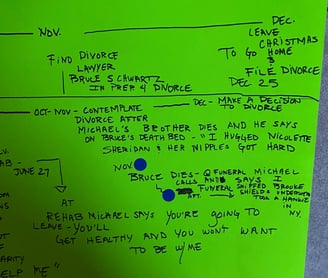 NOV.
DEC.
LEAVE
CHRISTMAS
TO GO HOME
&
FILE DIVORCE
DEC 25
FIND DIVORCE
LAWYER
BRUCE SCHWARTZ
IN PREP 4 DIVORCE
OCT-NOV - CONTEMPLATE
DIVORCE AFTER
DEC - MAKE A DECISION
TO DIVORCE
MICHAEL'S BROTHER DIES AND HE SAYS
ON BRUCE'S DEATH BED - "I HUGGED NICOLETTE
SHERIDAN & HER NIPPLES GOT HARD
NOV
BRUCE DIES - @ FUNERAL MICHAEL
CALLS SAYS I
FUNERAL SNIFFED BROOKE
SHIELDS
TOOK A
IN
NY.
JUNE 27
AT
REHAB MICHAEL SAYS YOU'RE GOING TO
LEAVE - YOU'LL
GET HEALTHY AND YOU WON'T WANT
TO BE W/ME
ELP ME"